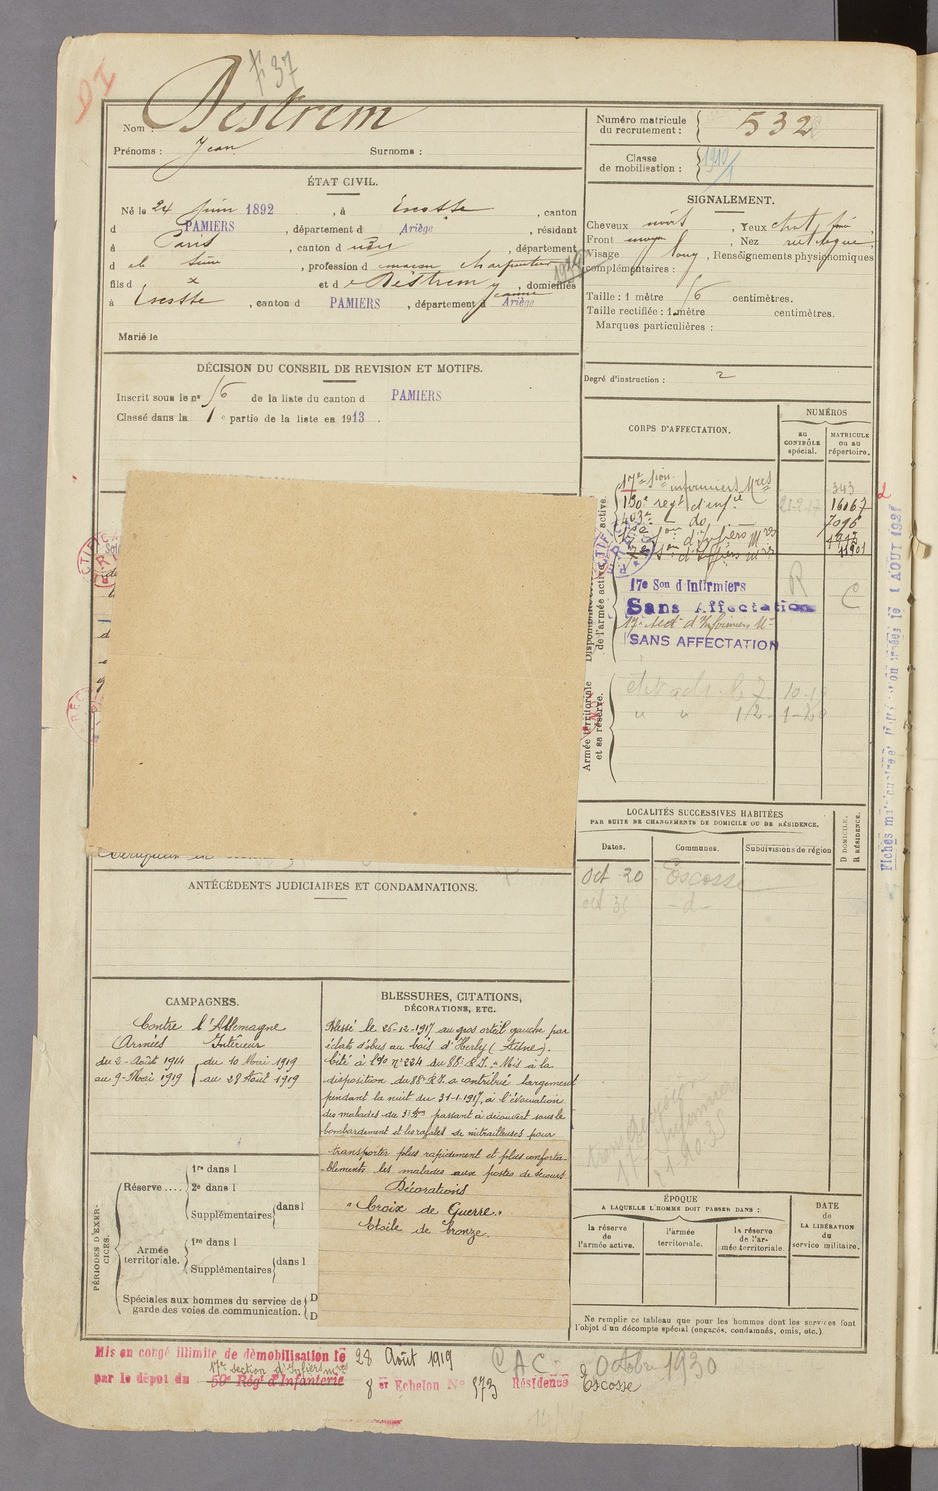 F 37
DI
Nom : Destrem
Prénoms : Jean Surnoms :
Numéro matricule du recrutement : 532
Classe de mobilisation : 1910
ÉTAT CIVIL.
Né le 24 Juin 1892, à Escosse, canton
d PAMIERS, département d Ariège, résidant
à Paris, canton d , département
d de la Seine, profession de charpentier
fils d x et de Destrem Jeanne, domiciliés
à Escosse, canton d PAMIERS, département d Ariège
Marié le
SIGNALEMENT.
Cheveux noirs, Yeux chat.
Front moyen, Nez rectiligne
Visage long, Renseignements physionomiques
complémentaires :
Taille : 1 mètre 56 centimètres.
Taille rectifiée : 1 mètre centimètres.
Marques particulières :
Degré d'instruction : 2
DÉCISION DU CONSEIL DE REVISION ET MOTIFS.
Inscrit sous le n° 56 de la liste du canton d PAMIERS
Classé dans la 1e partie de la liste en 1913.
CORPS D'AFFECTATION.
NUMÉROS
au CONTRÔLE spécial.
MATRICULE ou au répertoire.
17e Sion infirmiers Mres 343
130e regt d'infie 16067
403e do 7096
17e Son d'Infirmiers
Sans Affectation
17e Sect d'Infirmiers Mre
SANS AFFECTATION
R C
de l'armée active.
Armée territoriale et sa réserve.
LOCALITÉS SUCCESSIVES HABITÉES
PAR SUITE DE CHANGEMENTS DE DOMICILE OU DE RÉSIDENCE.
Dates. Communes. Subdivisions de région D DOMICILE. R RÉSIDENCE.
Oct 20 Escosse
oct 35 -d-
ANTÉCÉDENTS JUDICIAIRES ET CONDAMNATIONS.
CAMPAGNES.
Contre l'Allemagne
Armées Intérieur
du 2 - Août 1914 du 10 Mai 1919
au 9 - Mai 1919 au 28 Août 1919
BLESSURES, CITATIONS,
DÉCORATIONS, ETC.
Blessé le 26-12-1917 au gros orteil gauche par
éclats d'obus au bois d'Herly (Aisne).
Cité à l'O n° 224 du 88e R.I. "Mis à la
disposition du 88e R.I. a contribué largement
pendant la nuit du 31-1-1917, à l'évacuation
des malades du 3e Bon passant à découvert sous le
bombardement et les rafales de mitrailleuses pour
transporter plus rapidement et plus conforta-
blement les malades aux postes de secours.
Décorations
"Croix de Guerre"
Etoile de bronze.
PÉRIODES D'EXERCICES.
Réserve....
1re dans l
2e dans l
Supplémentaires dans l
Armée territoriale.
1re dans l
Supplémentaires dans l
Spéciales aux hommes du service de D
garde des voies de communication. D
ÉPOQUE
A LAQUELLE L'HOMME DOIT PASSER DANS :
la réserve de l'armée active.
l'armée territoriale.
la réserve de l'armée territoriale.
DATE de LA LIBÉRATION du service militaire.
Ne remplir ce tableau que pour les hommes dont les services font
l'objet d'un décompte spécial (engagés, condamnés, omis, etc.).
Mis en congé illimité de démobilisation le 28 Août 1919
17e section d'Infiers mres
par le dépôt du 59e Régt d'Infanterie 8 er Echelon N° 573 Résidence Escosse
C A C Octobre 1930
AOUT 1921